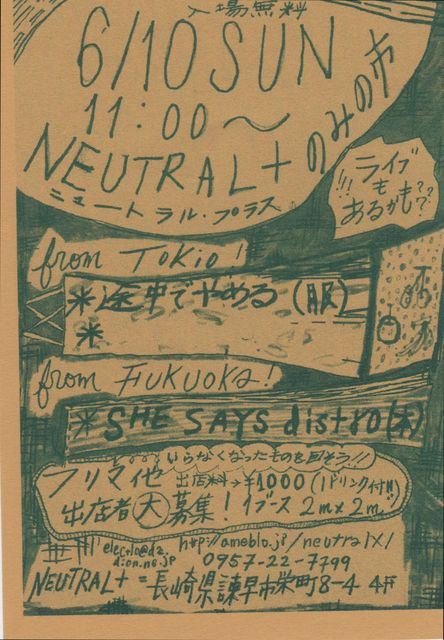 入場無料
6/10 SUN
11:00〜
NEUTRAL+ のみの市
ニュートラル・プラス
!!ライブ
も
あるかも???
from TOKiO!
*途中でやめる(服)
*
from FUKUOKA!
*SHE SAYS distro(本)
いらなくなったものを回そう!!
フリマ他 出店料→¥1000(1ドリンク付!!)
出店者大募集! 1ブース 2m×2m
http://ameblo.jp/neutralx/
dion.ne.jp
0957-22-7799
NEUTRAL+=長崎県諫早市栄町8-4 4F